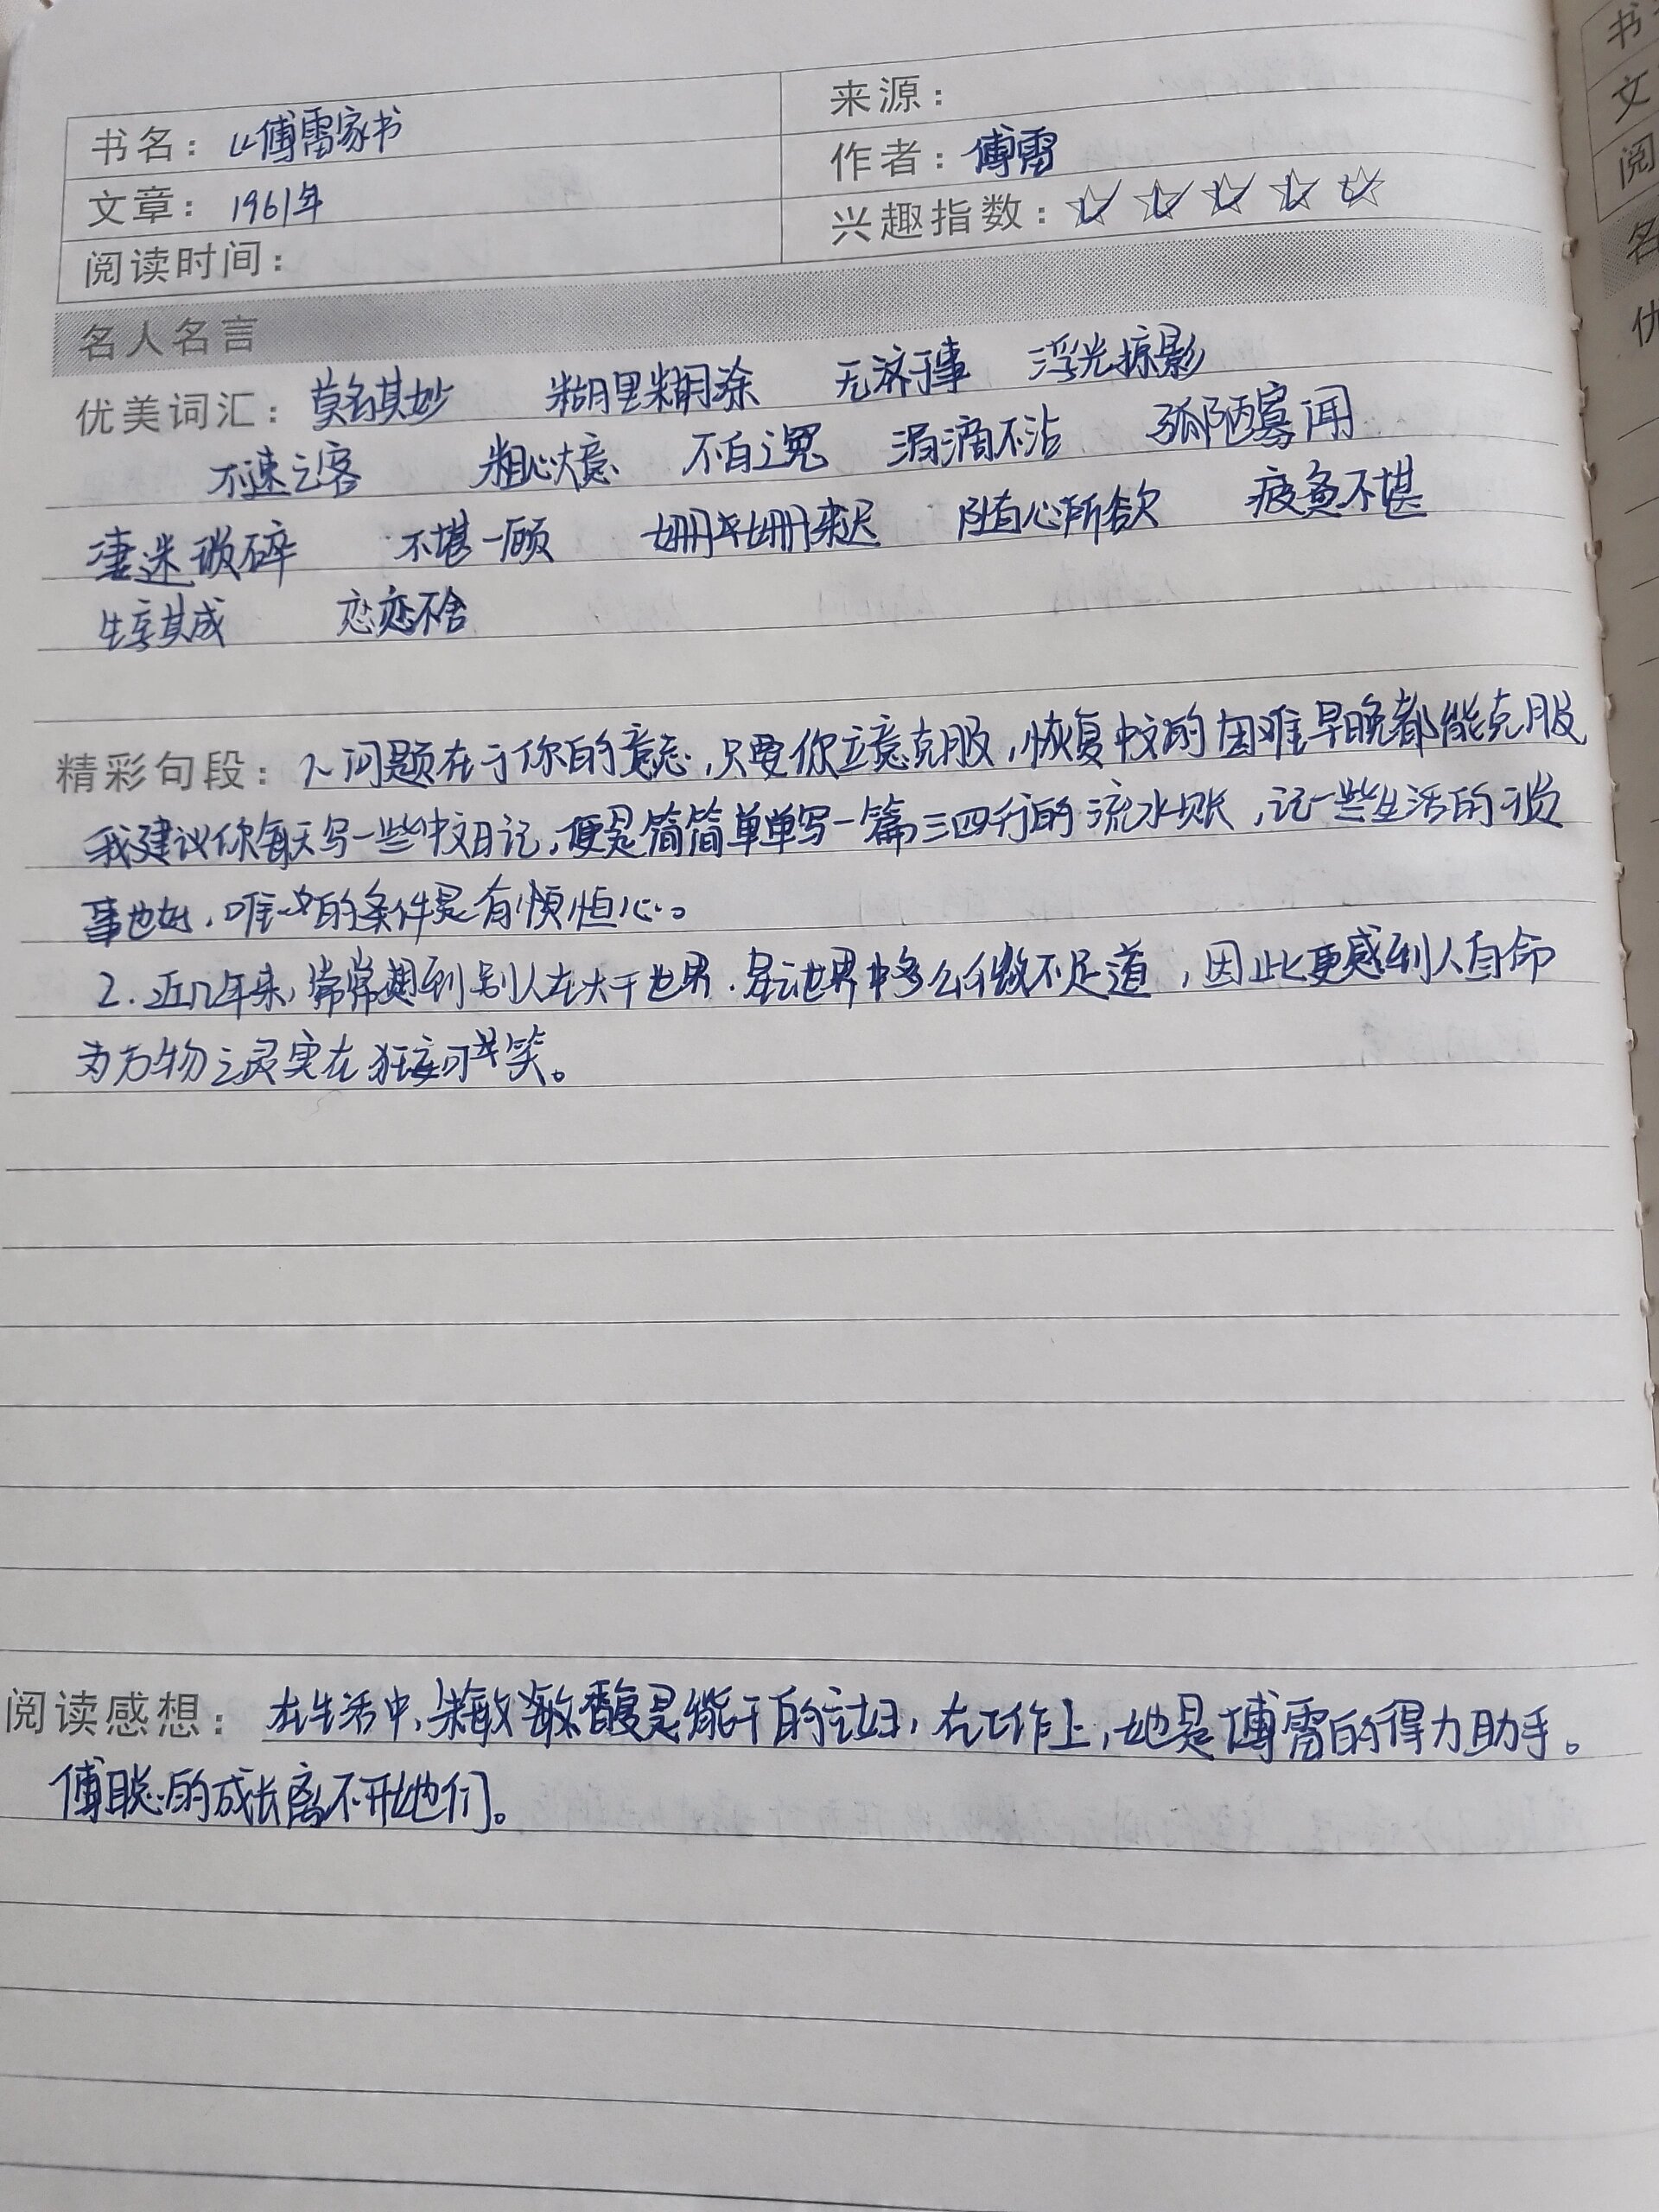 书名：《傅雷家书
来源：
文章：1961年
作者：傅雷
阅读时间：
兴趣指数：☆☆☆☆☆
名人名言
优美词汇：莫名其妙 糊里糊涂 无济于事 浮光掠影
不速之客 粗心大意 不白之冤 涓滴不沾 孤陋寡闻
凄迷琐碎 不堪一顾 姗姗来迟 随心所欲 疲惫不堪
坐享其成 恋恋不舍
精彩句段：1、问题在于你的意志，只要你立意克服，恢复中文的困难早晚都能克服
我建议你每天写一些中文日记，便是简简单单写一篇三四行的流水账，记一些生活的琐
事也好，唯一的条件是有恒心。
2. 近几年来，常常想到别人在大千世界，星云世界中多么微不足道，因此更感到人自命
为万物之灵实在狂妄可笑。
阅读感想：在生活中，朱敏馥是能干的主妇，在工作上，她是傅雷的得力助手。
傅聪的成长离不开她们。
书
文
阅
名
优